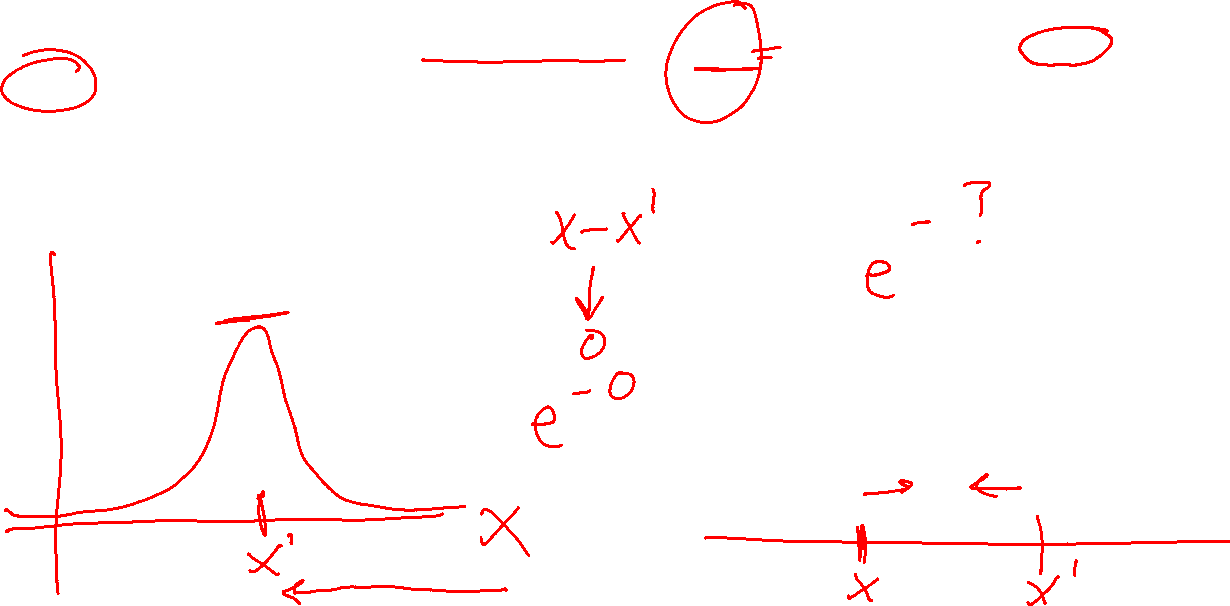 x-x'
e^{-?}
0
e^{-0}
x
x'
x
x'